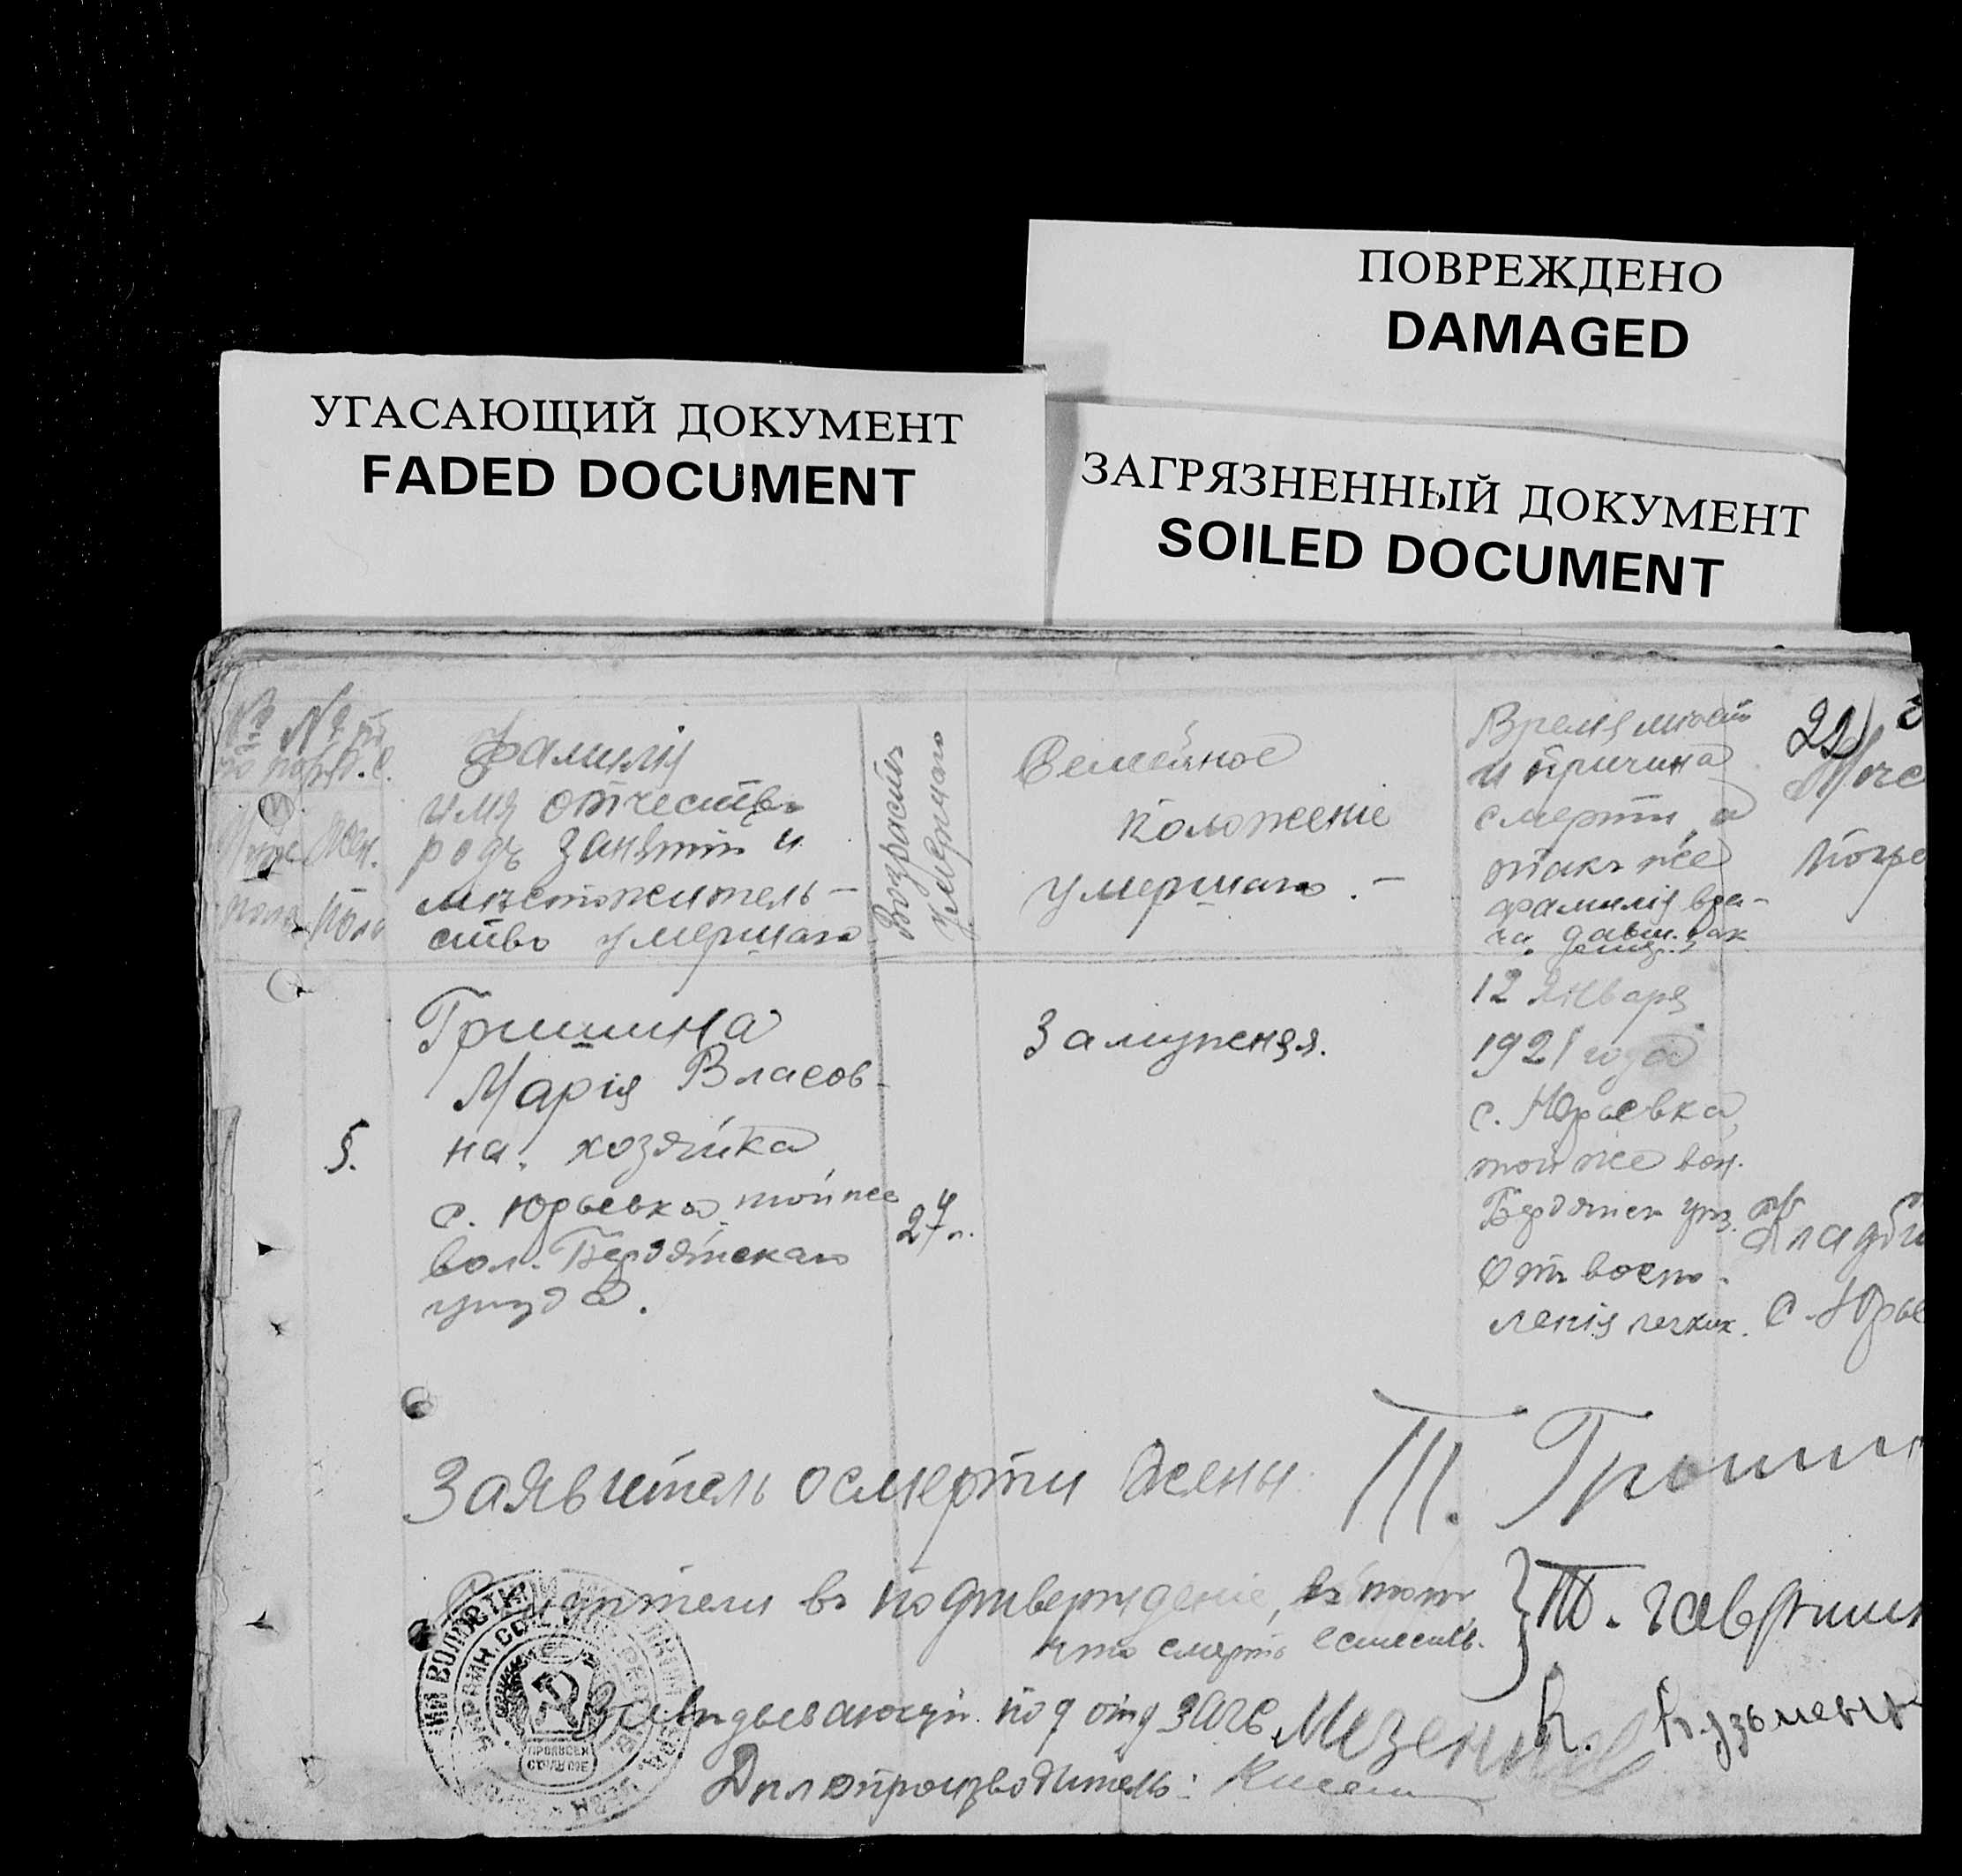 ПОВРЕЖДЕНО
DAMAGED
УГАСАЮЩИЙ ДОКУМЕНТ
FADED DOCUMENT
ЗАГРЯЗНЕННЫЙ ДОКУМЕНТ
SOILED DOCUMENT
№ № по
по поряд. с.
Муж. Жен.
пола пола
Фамилія
имя отчество
родъ занятій и
мѣстожитель-
ство умершаго
Возрастъ
умершаго
Семейное
положеніе
умершаго. -
Время мѣсто
и причина
смерти, а
также
фамилія вра-
ча, давш.
22
Погре
5.
Гришина
Марія Власов-
на. хозяйка
с. Юрьевка той же
вол. Бердянскаго
уѣзда.
27 л.
Замужняя.
12 Января
1921 года
с. Юрьевка
той же вол.
Бердянск уѣз.
Отъ воспа-
ленія легких.
Кладби
с. Юрье
Заявитель о смерти жены: Т. Гриши
въ подтвержденіе, въ томъ,
что смерть естеств.
Т. Гавриши
К. Кузьмень
Завѣдывающій подотд ЗАГС Мизен
Дѣлопроизводитель: